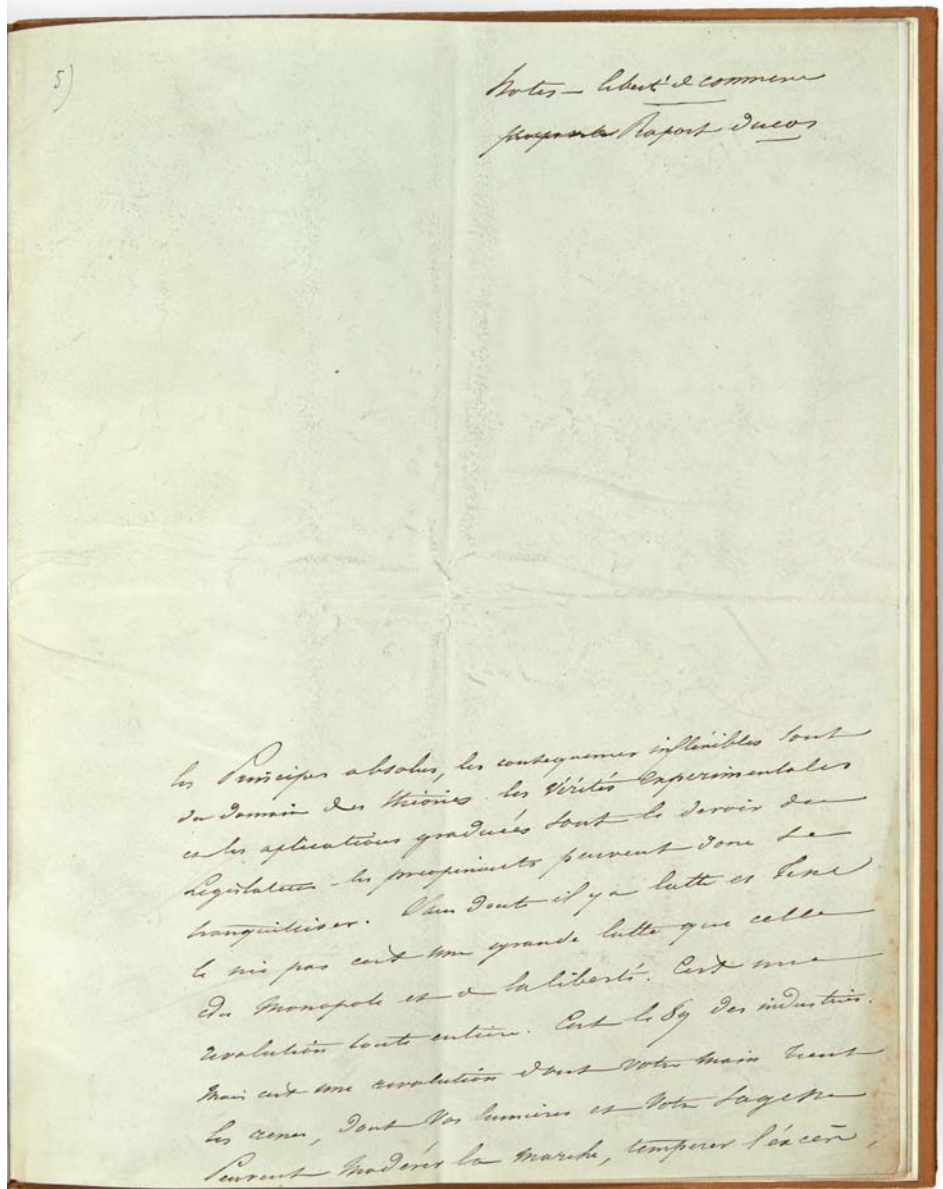 5)
Notes — liberté de commerce
Raport Ducos
les Principes absolus, les consequences infléxibles sont
du domain des théories. les Vérités experimentales
et les aplications graduées sont le devoir du
Legislateur — les préopinants peuvent donc se
tranquiliser. Sans doute il y a lutte et je ne
le nie pas c'est une grande lutte que celle
du Monopole et de la liberté. C'est une
révolution toute entière. C'est le 89 des industries.
Mais c'est une révolution dont votre main tient
les renes, dont Vos lumières et Votre Sagesse
Peuvent Modérer la marche, temperer l'éxcès,